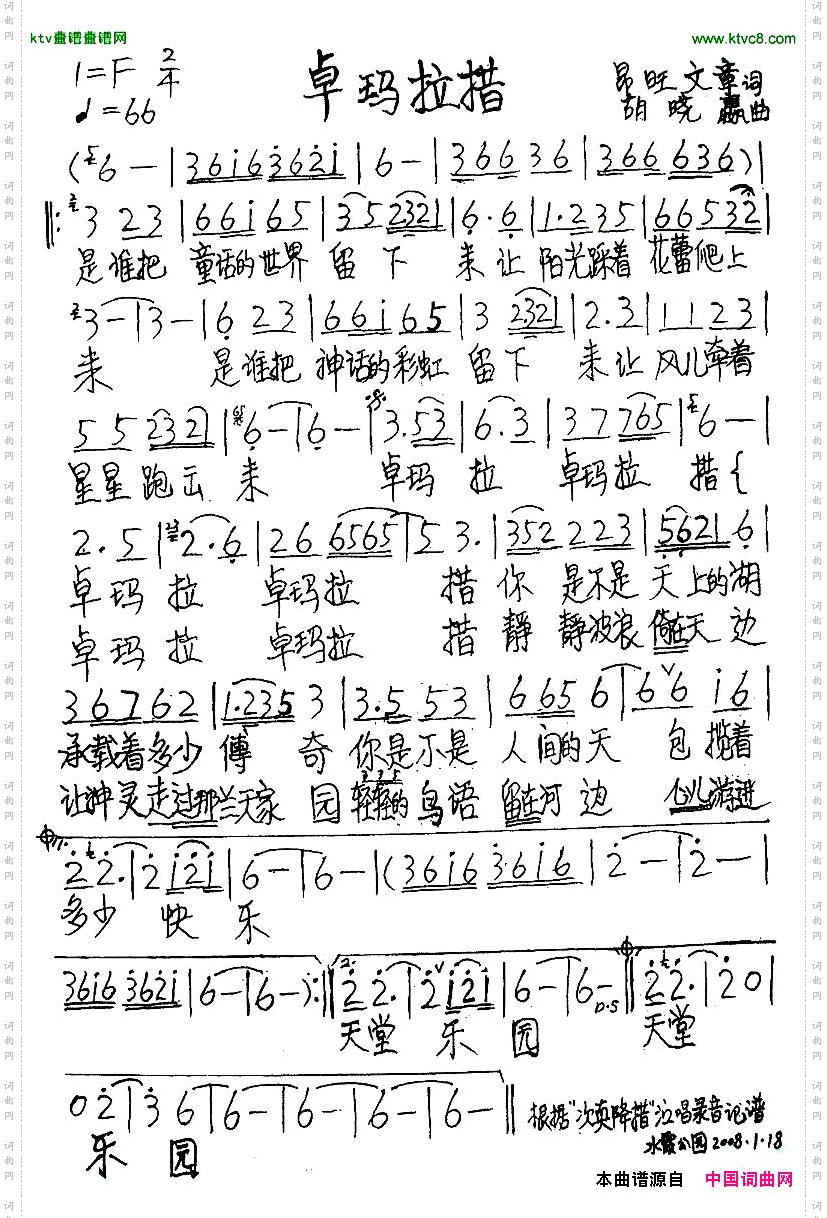 ktv啚谱啚谱网 www.ktvc8.com
1=F 2/4 卓玛拉措 昂旺文章词
♩=66 胡晓 曲
(6 — | 3 6 i 6 3 6 2 i | 6 — | 3 6 6 3 6 | 3 6 6 6 3 6 ) |
‖: 3 2 3 | 6 6 i 6 5 | 3 5 2 3 2 1 | 6 · 6 | 1 · 2 3 5 | 6 6 5 3 2 |
是谁把 童话的世界 留 下 来 让 阳光踩着 花蕾爬上
3 — | 3 — | 6 2 3 | 6 6 i 6 5 | 3 2 3 2 1 | 2 . 3 | 1 1 2 3 |
来 是谁把 神话的彩虹 留 下 来 让 风儿牵着
5 5 2 3 2 1 | 6 — | 6 — | 3 . 5 3 | 6 . 3 | 3 7 7 6 5 | 6 — |
星星跑云来 卓玛 拉 卓玛拉 措 {
2 . 5 | 2 . 6 | 2 6 6 5 6 5 | 5 3 . | 3 5 2 2 2 3 | 5 6 2 1 6 |
卓玛 拉 卓玛拉 措 你 是不是 天上的湖
卓玛 拉 卓玛拉 措 静 静波浪 倚在天 边
3 6 7 6 2 | 1 . 2 3 5 3 | 3 . 5 5 3 | 6 6 5 6 | 6 6 i 6 |
承载着多少 傳 奇 你是不是 人间的天 包 揽着
让神灵走过那兰天家 园 轻轻的 鸟语 留在河 边 心儿游进
2 2 . | 2 i 2 i | 6 — | 6 — | ( 3 6 i 6 3 6 i 6 | 2 — | 2 — |
多少 快 乐
3 6 i 6 3 6 2 i | 6 — | 6 — ) :‖ 2. 2 2 . | 2 i 2 i | 6 — | 6 — D.S ‖ 2 2 . | 2 0 |
天堂 乐 园 天堂
0 2 | 3 6 | 6 — | 6 — | 6 — | 6 — | 6 — ‖ 根据"次真降措"演唱录音记谱
乐 园 水霞公园 2008.1.18
本曲谱源自 中国词曲网
词曲网